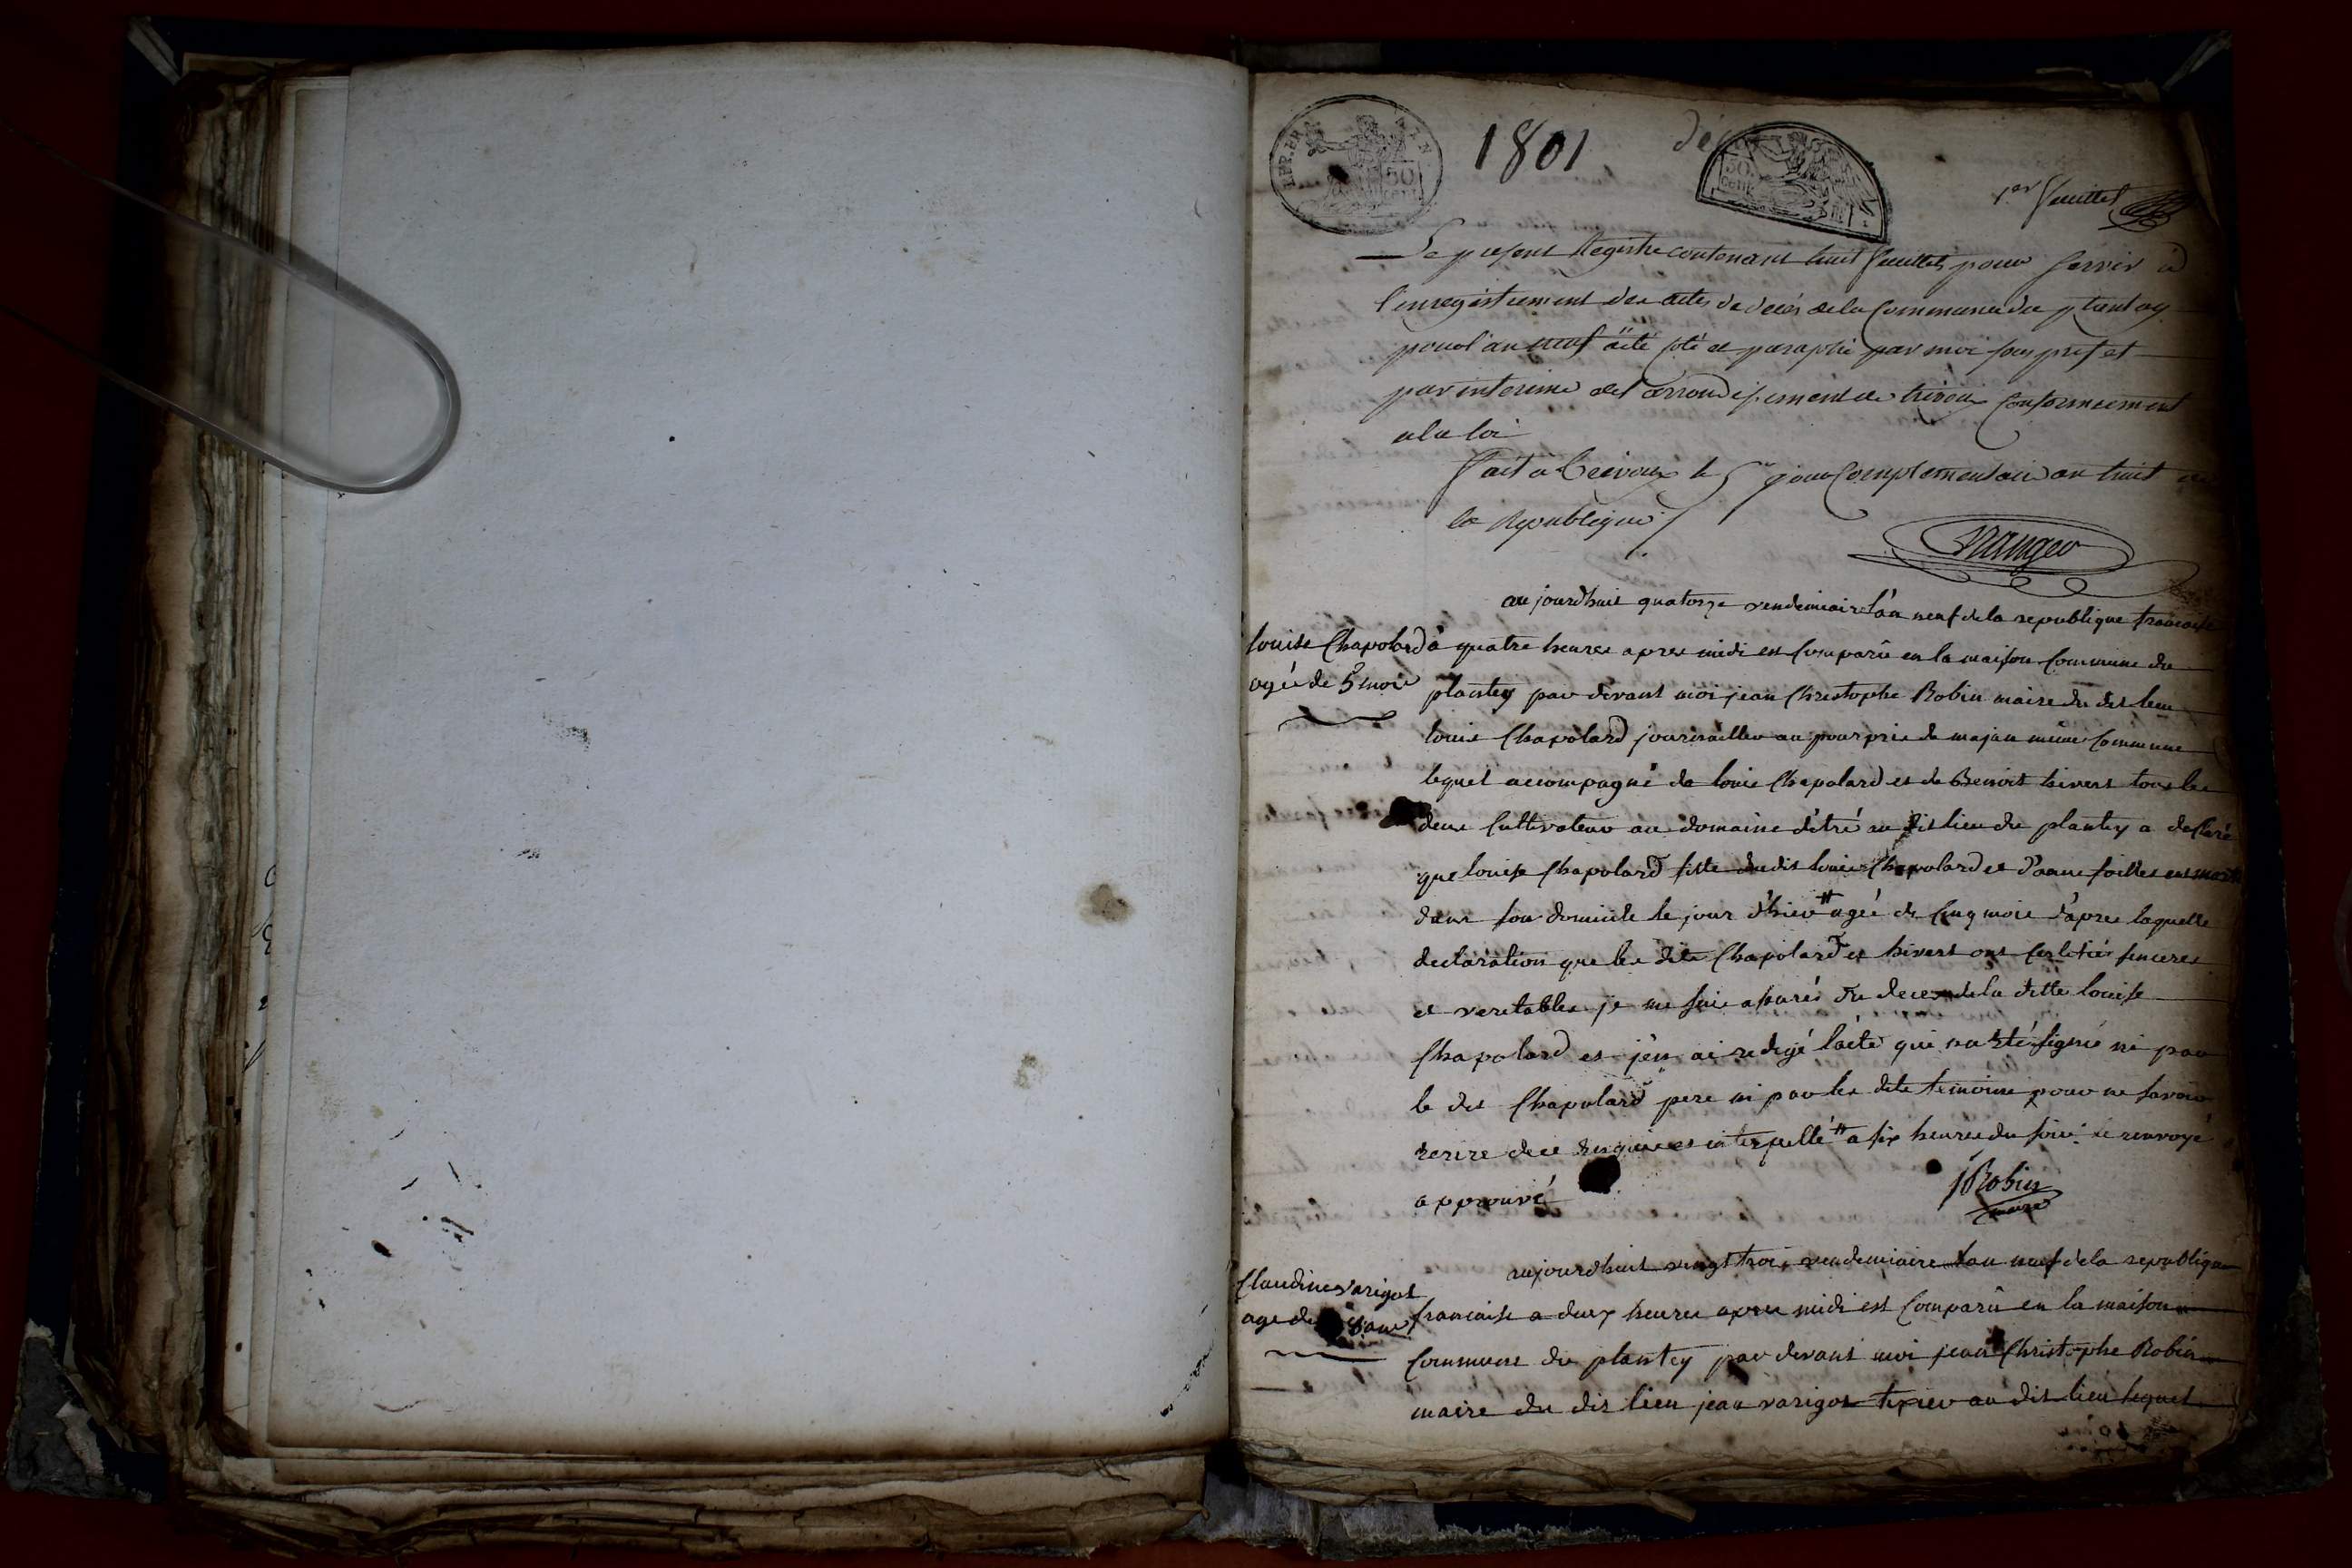 REP. FRA
50
cent
1801
déc
50.
cent
1.er feuillet
Le present Registre contenant huit feuillets pour servir à
l'enregistrement des actes de decés de la Commune du plantay
pour l'an neuf a été coté et paraphé par moi sous prefet
par interime de l'arrondissement de trévoux Conformement
a la loi
fait à Trévoux le 5e jour Complementaire an huit de
la Republique
aujourdhuit quatorze vendemiaire l'an neuf de la republique francaise
louise Chapolard
agée de 5 mois
à quatre heures apres midi est Comparû en la maison Commune du
plantey par devant moi jean Christophe Robin maire du dit lieu
louis Chapolard journaillier au pourpris de majan même Commune
lequel accompagné de louis Chapolard et de Benoit hivert tous les
deux Cultivateur au domaine d'êtré au dit lieu du plantey a declaré
que louise Chapolard fille du dit louis Chapolard et d'anne est morte
dans son domicile le jour d'hier # agée de Cinq mois d'apres laquelle
declaration que les dits Chapolard et hivert ont certifiés sinceres
et veritables je me suis assuré du deces de la ditte louise
Chapolard et j'en ai redigé l'acte qui n'a été signé ni par
le dit Chapolard pere ni par les dits temoins pour ne savoir
ecrire de ce enquis et interpellé # a six heures du soir le renvoye
approuvé
JRobin
maire
Claudine varigot
age de 8 ans
aujourdhuit vingt trois vendemiaire l'an neuf de la republique
francaise a deux heures apres midi est Comparû en la maison
Commune du plantey par devant moi jean Christophe Robin
maire du dit lieu jean varigot texier au dit lieu lequel